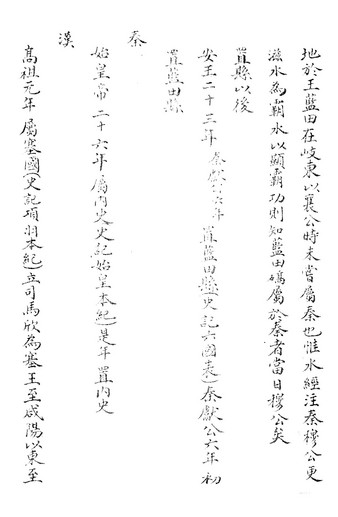 地於王藍田在岐東以襄公時未嘗屬秦也惟水經注秦穆公更
滋水為霸水以顯霸功則知藍田礄屬於秦者當日穆公矣
置縣以後
安王二十三年秦獻公六年置藍田縣(史記六國表)秦獻公六年初
置藍田縣
秦
始皇帝二十六年屬內史(史記始皇本紀)是年置內史
漢
高祖元年屬塞國(史記項羽本紀)立司馬欣為塞王至咸陽以東至